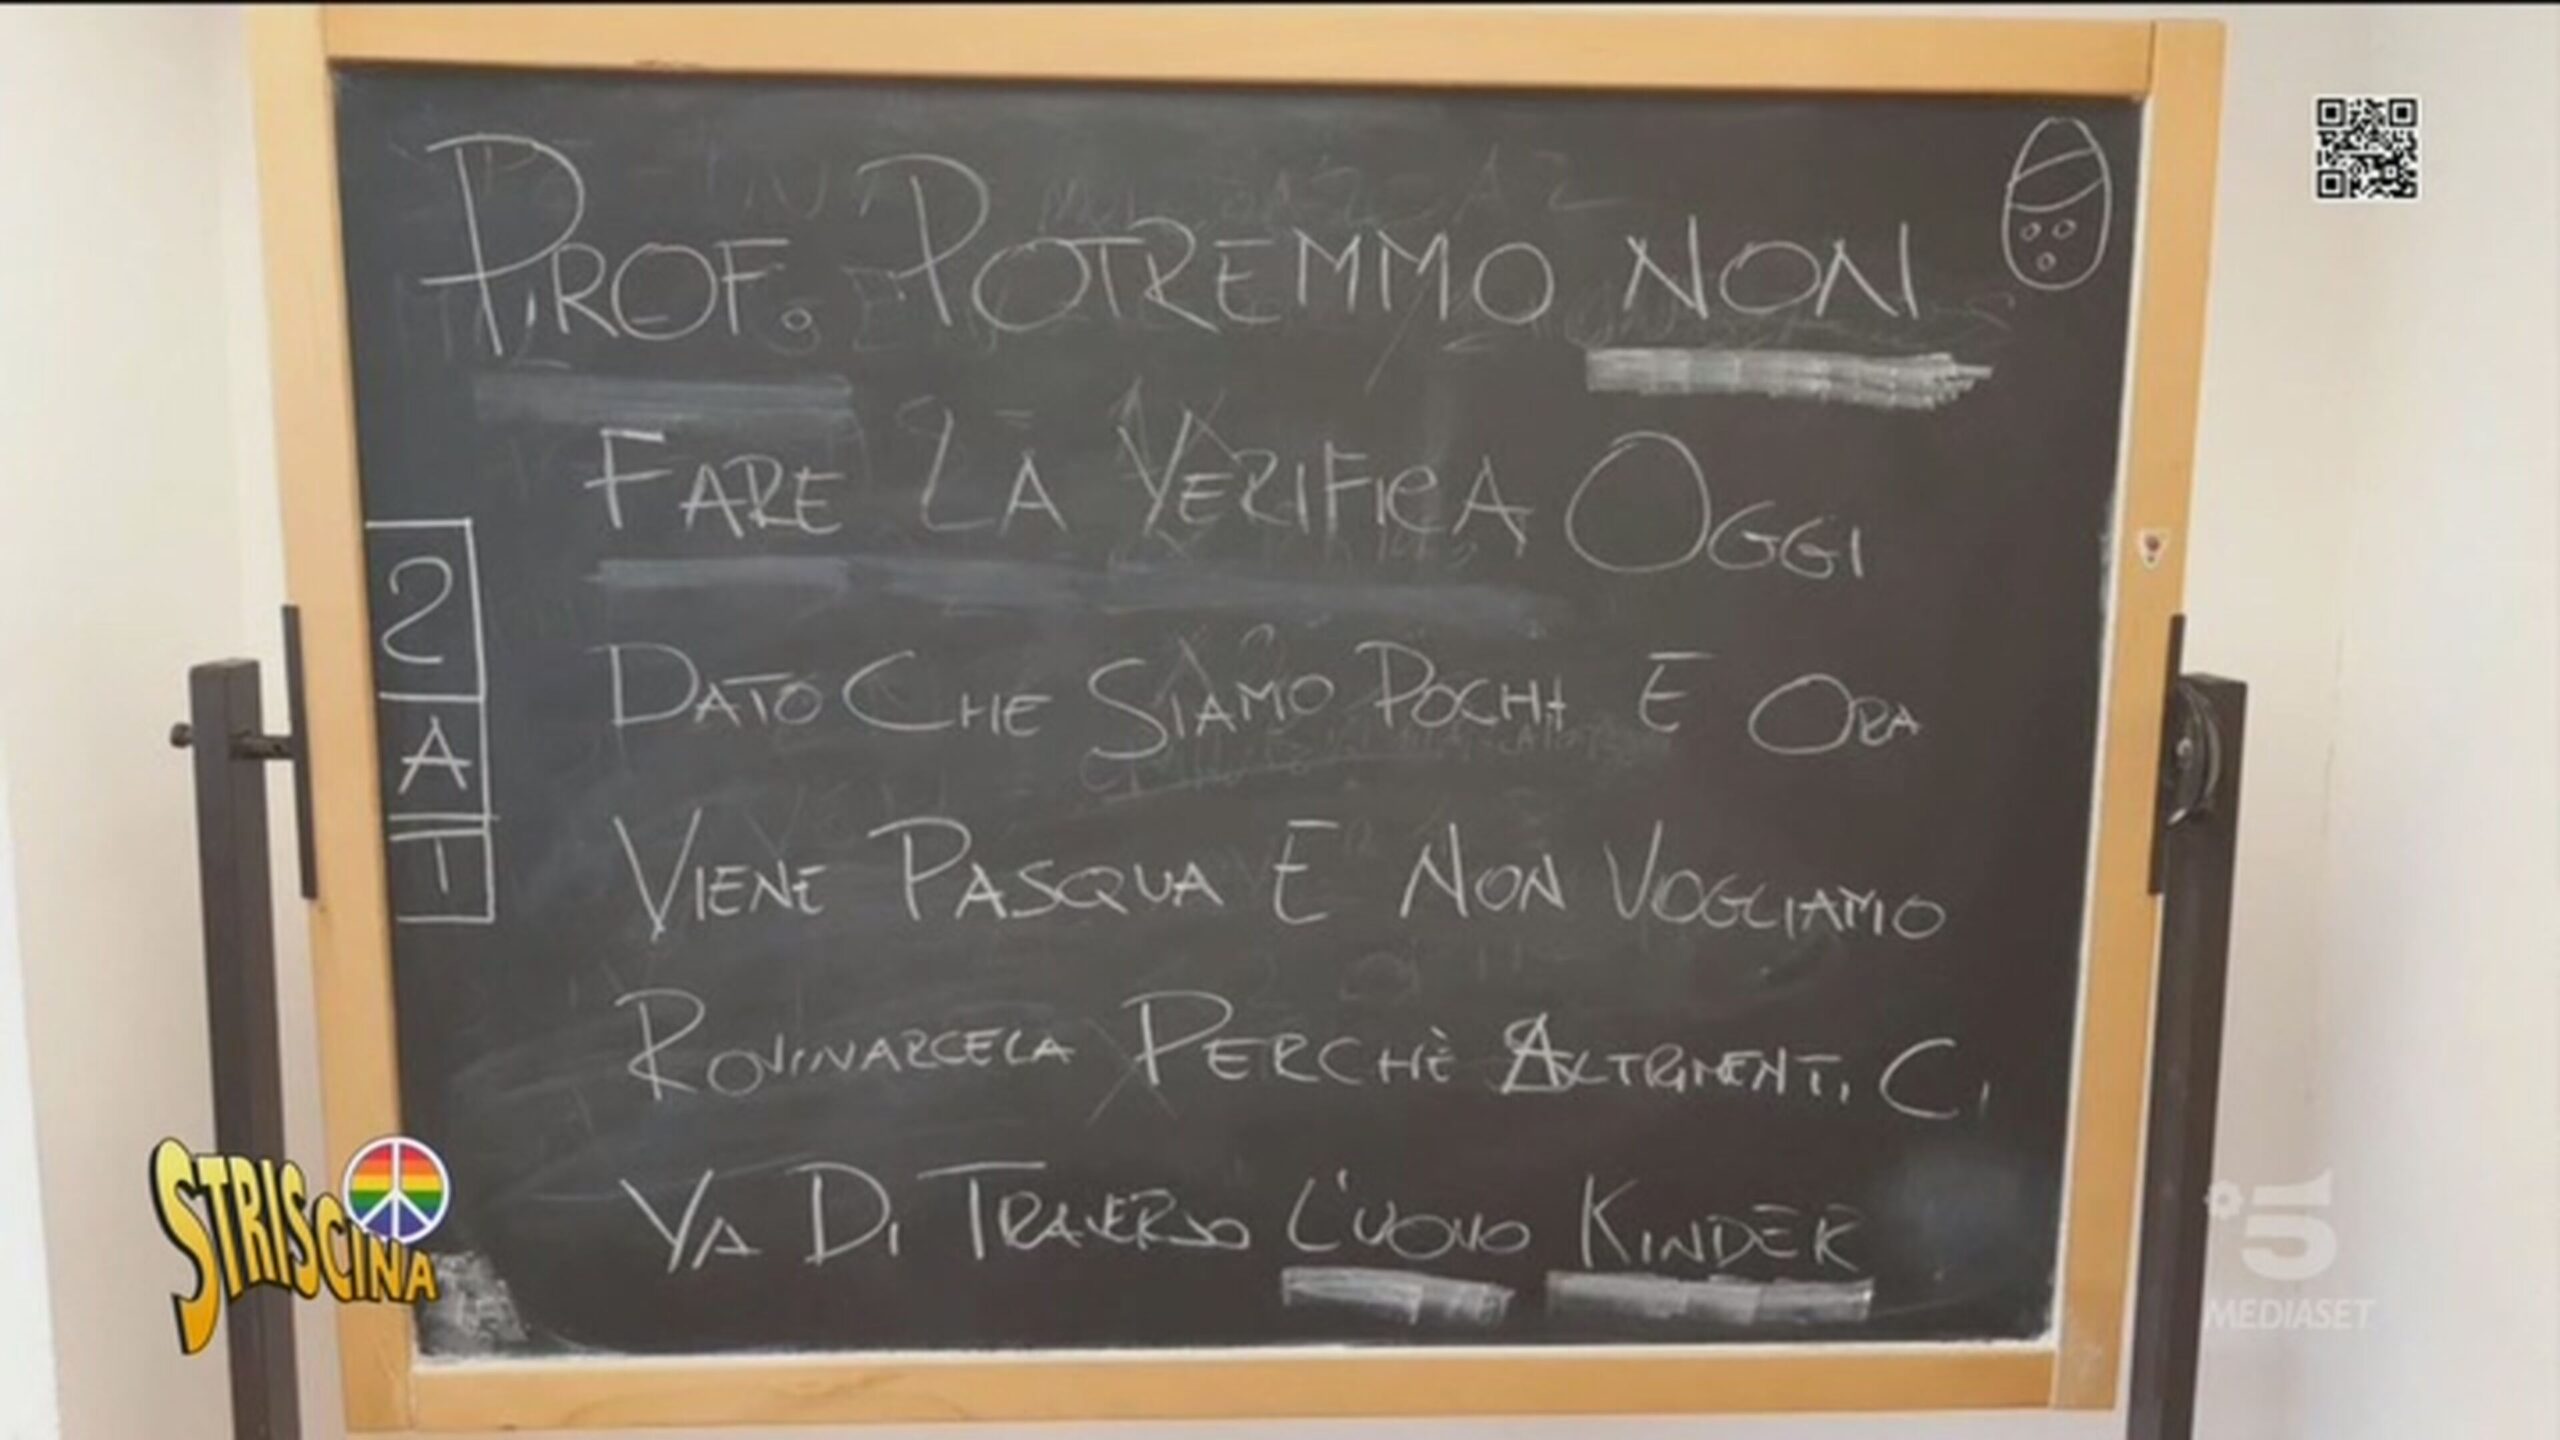 PROF. POTREMMO NON
FARE LA VERIFICA OGGI
DATO CHE SIAMO POCHI E ORA
VIENE PASQUA E NON VOGLIAMO
ROVINARCELA PERCHÈ ALTRIMENTI CI
VA DI TRAVERSO L'UOVO KINDER
2
A
T
STRISCINA
5
MEDIASET